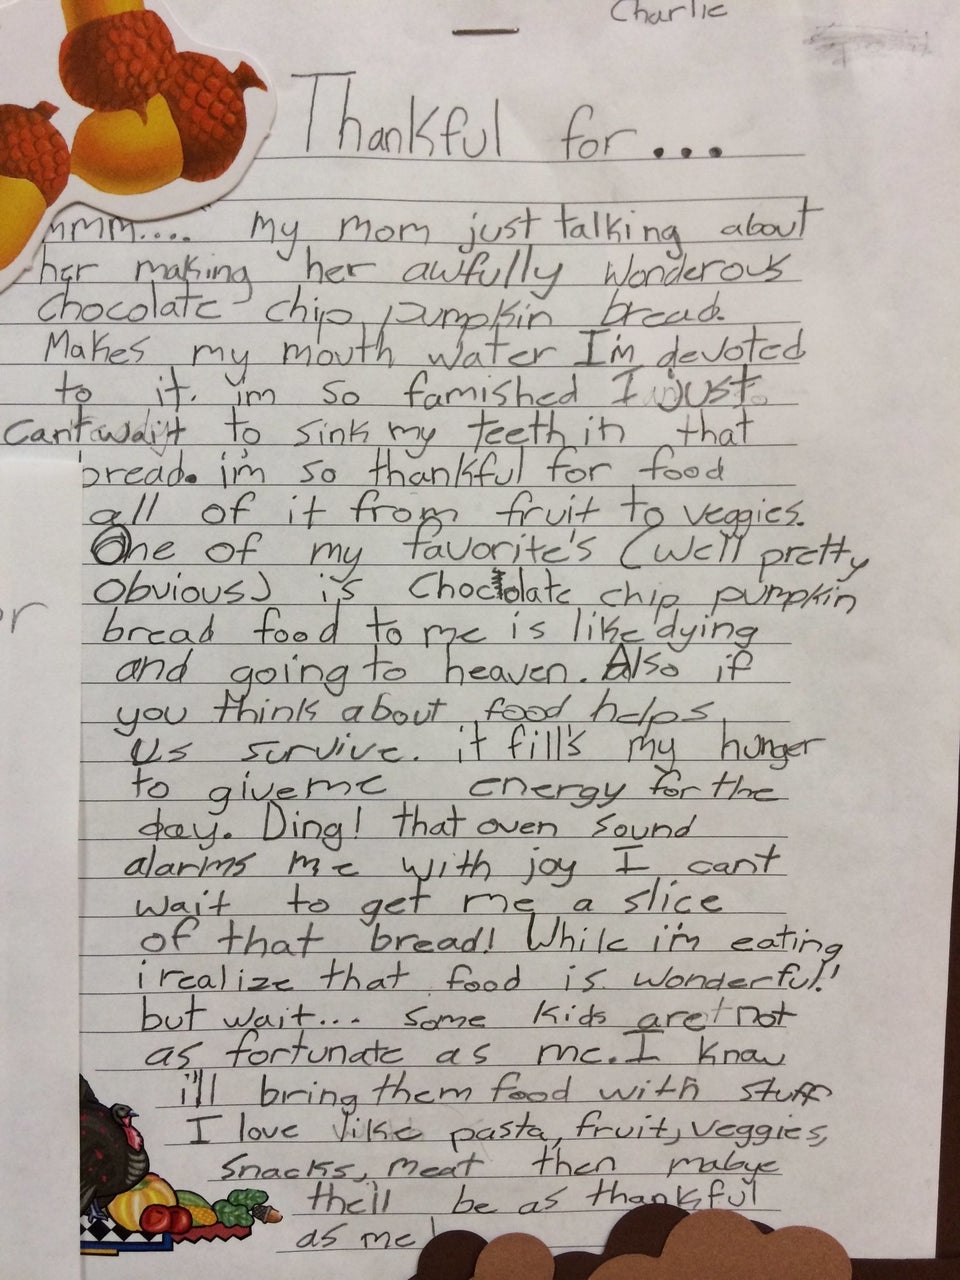 Charlie
Thankful for...
mmm.... my mom just talking about
her making her awfully wonderous
chocolate chip pumpkin bread.
Makes my mouth water I'm devoted
to it. i'm so famished I just
can't wait to sink my teeth in that
bread. i'm so thankful for food
all of it from fruit to veggies.
One of my favorite's (we'll pretty
obvious) is Choclolate chip pumpkin
bread food to me is like dying
and going to heaven. Also if
you think about food helps
us survive. it fill's my hunger
to give me energy for the
day. Ding! that oven sound
alarms me with joy I cant
wait to get me a slice
of that bread! While i'm eating
i realize that food is wonderful!
but wait... some kids are not
as fortunate as me. I know
i'll bring them food with stuff
I love like pasta, fruit, veggies,
snacks, meat then mabye
the'll be as thankful
as me!
or